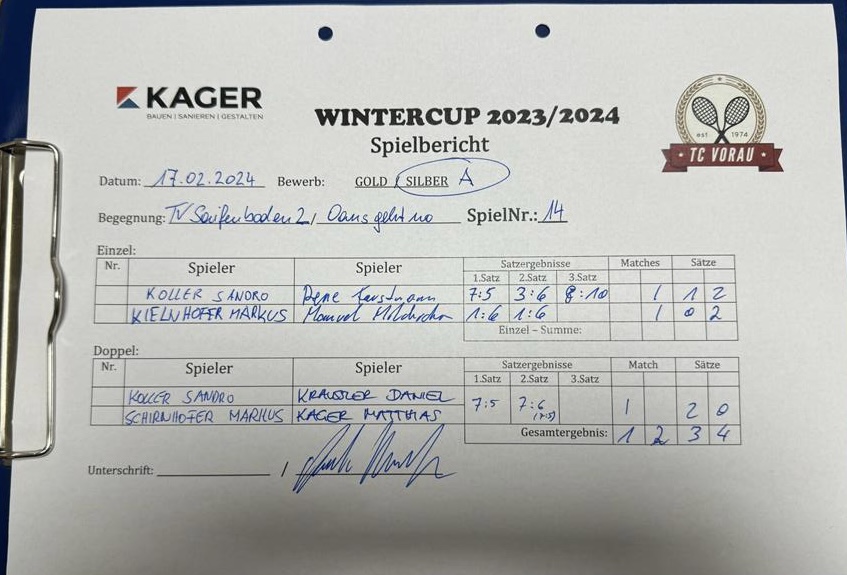 KAGER
BAUEN | SANIEREN | GESTALTEN
WINTERCUP 2023/2024
Spielbericht
est 1974
TC VORAU
Datum: 17.02.2024 Bewerb: GOLD / SILBER A
Begegnung: TV Saifenboden 2 / Oans geht no SpielNr.: 14
Einzel:
Nr. Spieler Spieler Satzergebnisse Matches Sätze
1.Satz 2.Satz 3.Satz
KOLLER SANDRO Rene 7:5 3:6 8:10 1 1 2
KIELNHOFER MARKUS Manuel 1:6 1:6 1 0 2
Einzel – Summe:
Doppel:
Nr. Spieler Spieler Satzergebnisse Match Sätze
1.Satz 2.Satz 3.Satz
KOLLER SANDRO KRAUSLER DANIEL
SCHIRNHOFER MARKUS KAGER MATTHIAS 7:5 7:6 1 2 0
Gesamtergebnis: 1 2 3 4
Unterschrift: /